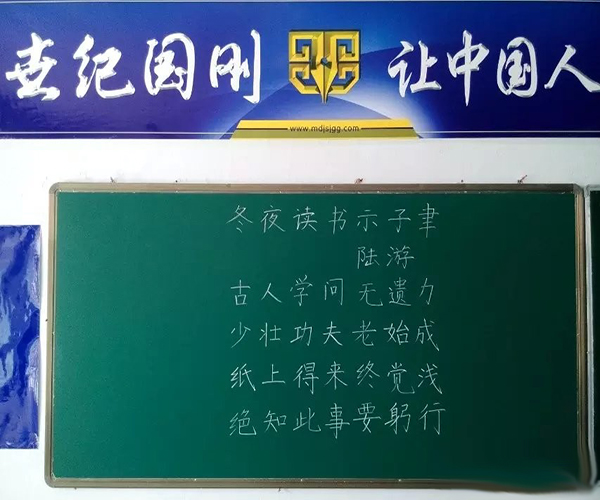 世纪国刚 让中国人
www.mdjsjgg.com
冬夜读书示子聿
陆游
古人学问无遗力
少壮功夫老始成
纸上得来终觉浅
绝知此事要躬行